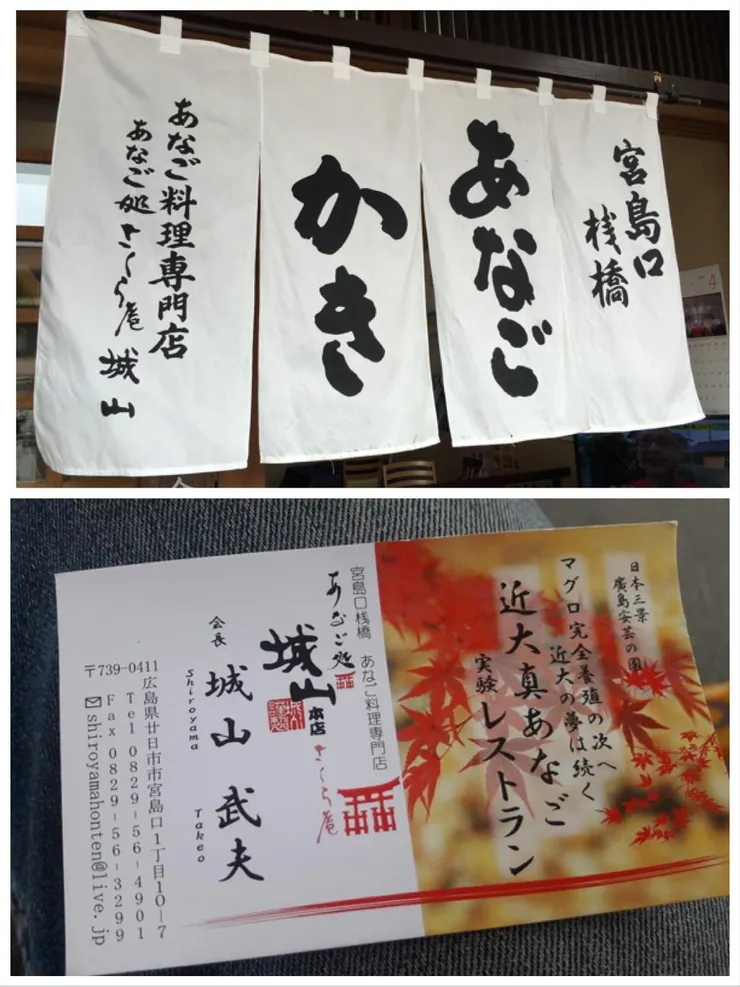 宮島口
桟橋
あなご
かき
あなご料理専門店
あなご処 さくら庵 城山
4
日本三景
廣島安芸の國
マグロ完全養殖の次へ
近大の夢は続く
近大真あなご
実験レストラン
宮島口桟橋 あなご料理専門店
あなご処
城山本店
さくら庵
会長 城山 武夫
Shiroyama Takeo
〒739-0411
広島県廿日市市宮島口1丁目10-7
Tel 0829-56-4901
Fax 0829-56-3299
shiroyamahonten@live.jp